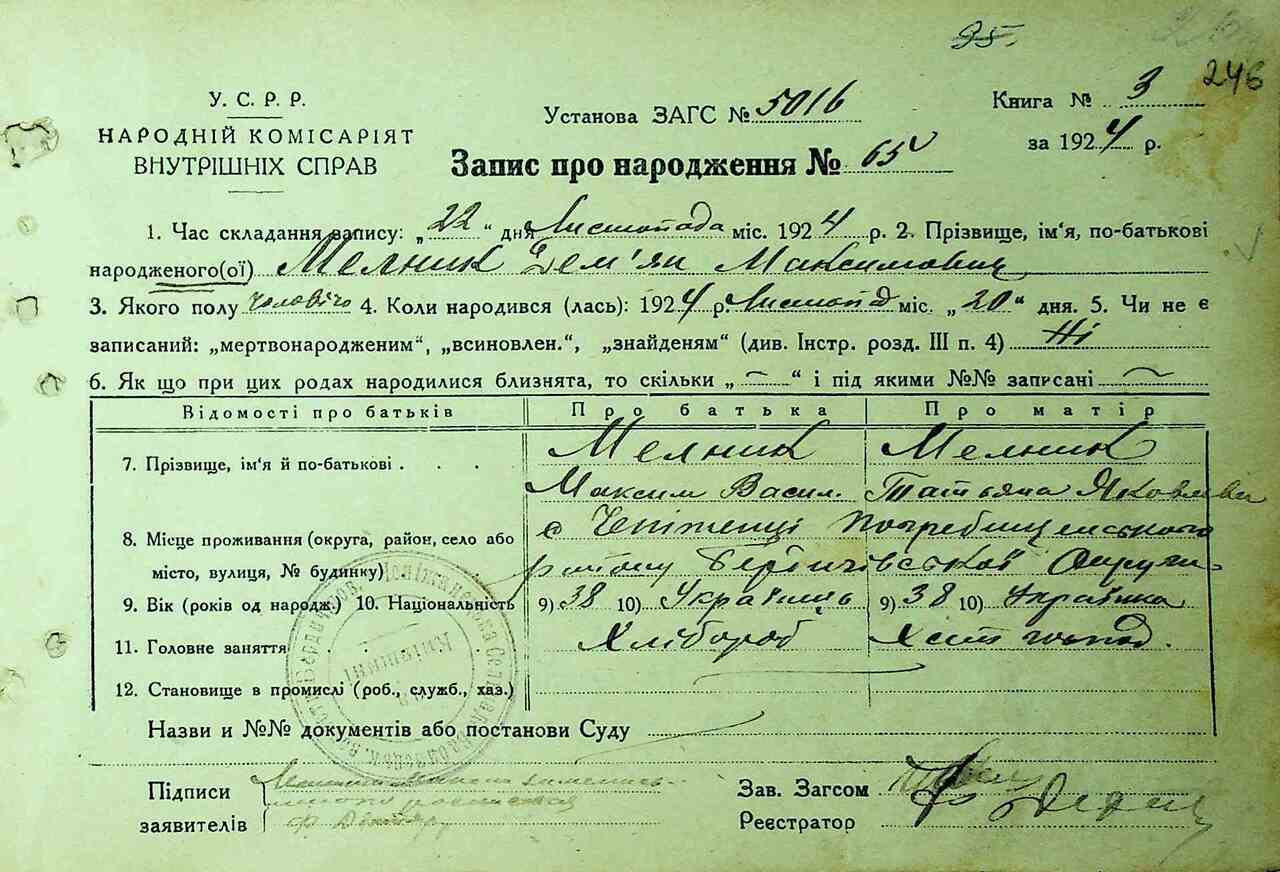 95.
246
У. С. Р. Р.
НАРОДНІЙ КОМІСАРІЯТ
ВНУТРІШНІХ СПРАВ
Установа ЗАГС № 5016
Книга № 3
за 1924 р.
Запис про народження № 65
1. Час складання запису: „22" дня Листопада міс. 1924 р. 2. Прізвище, ім'я, по-батькові
народженого(ої) Мелник Дем'ян Максимович
3. Якого полу чоловічо 4. Коли народився (лась): 1924 р. Листопад міс. „20" дня. 5. Чи не є
записаний: „мертвонародженим", „всиновлен.", „знайденям" (див. Інстр. розд. III п. 4) Ні
6. Як що при цих родах народилися близнята, то скільки „ — " і під якими №№ записані —
Відомості про батьків Про батька Про матір
7. Прізвище, ім'я й по-батькові . . . Мелник Мелник
Максим Васил. Татьяна Яковлевн
8. Місце проживання (округа, район, село або
місто, вулиця, № будинку)
с Чепіженці Погребищенського
району Бердичівської Округи
9. Вік (років од народж.) 10. Національність 9) 38 10) Українець 9) 38 10) Українка
11. Головне заняття . . . Хлібороб Хатн господ.
12. Становище в промислі (роб., служб., хаз.)
Назви и №№ документів або постанови Суду
Підписи
заявителів
Зав. Загсом
Реєстратор